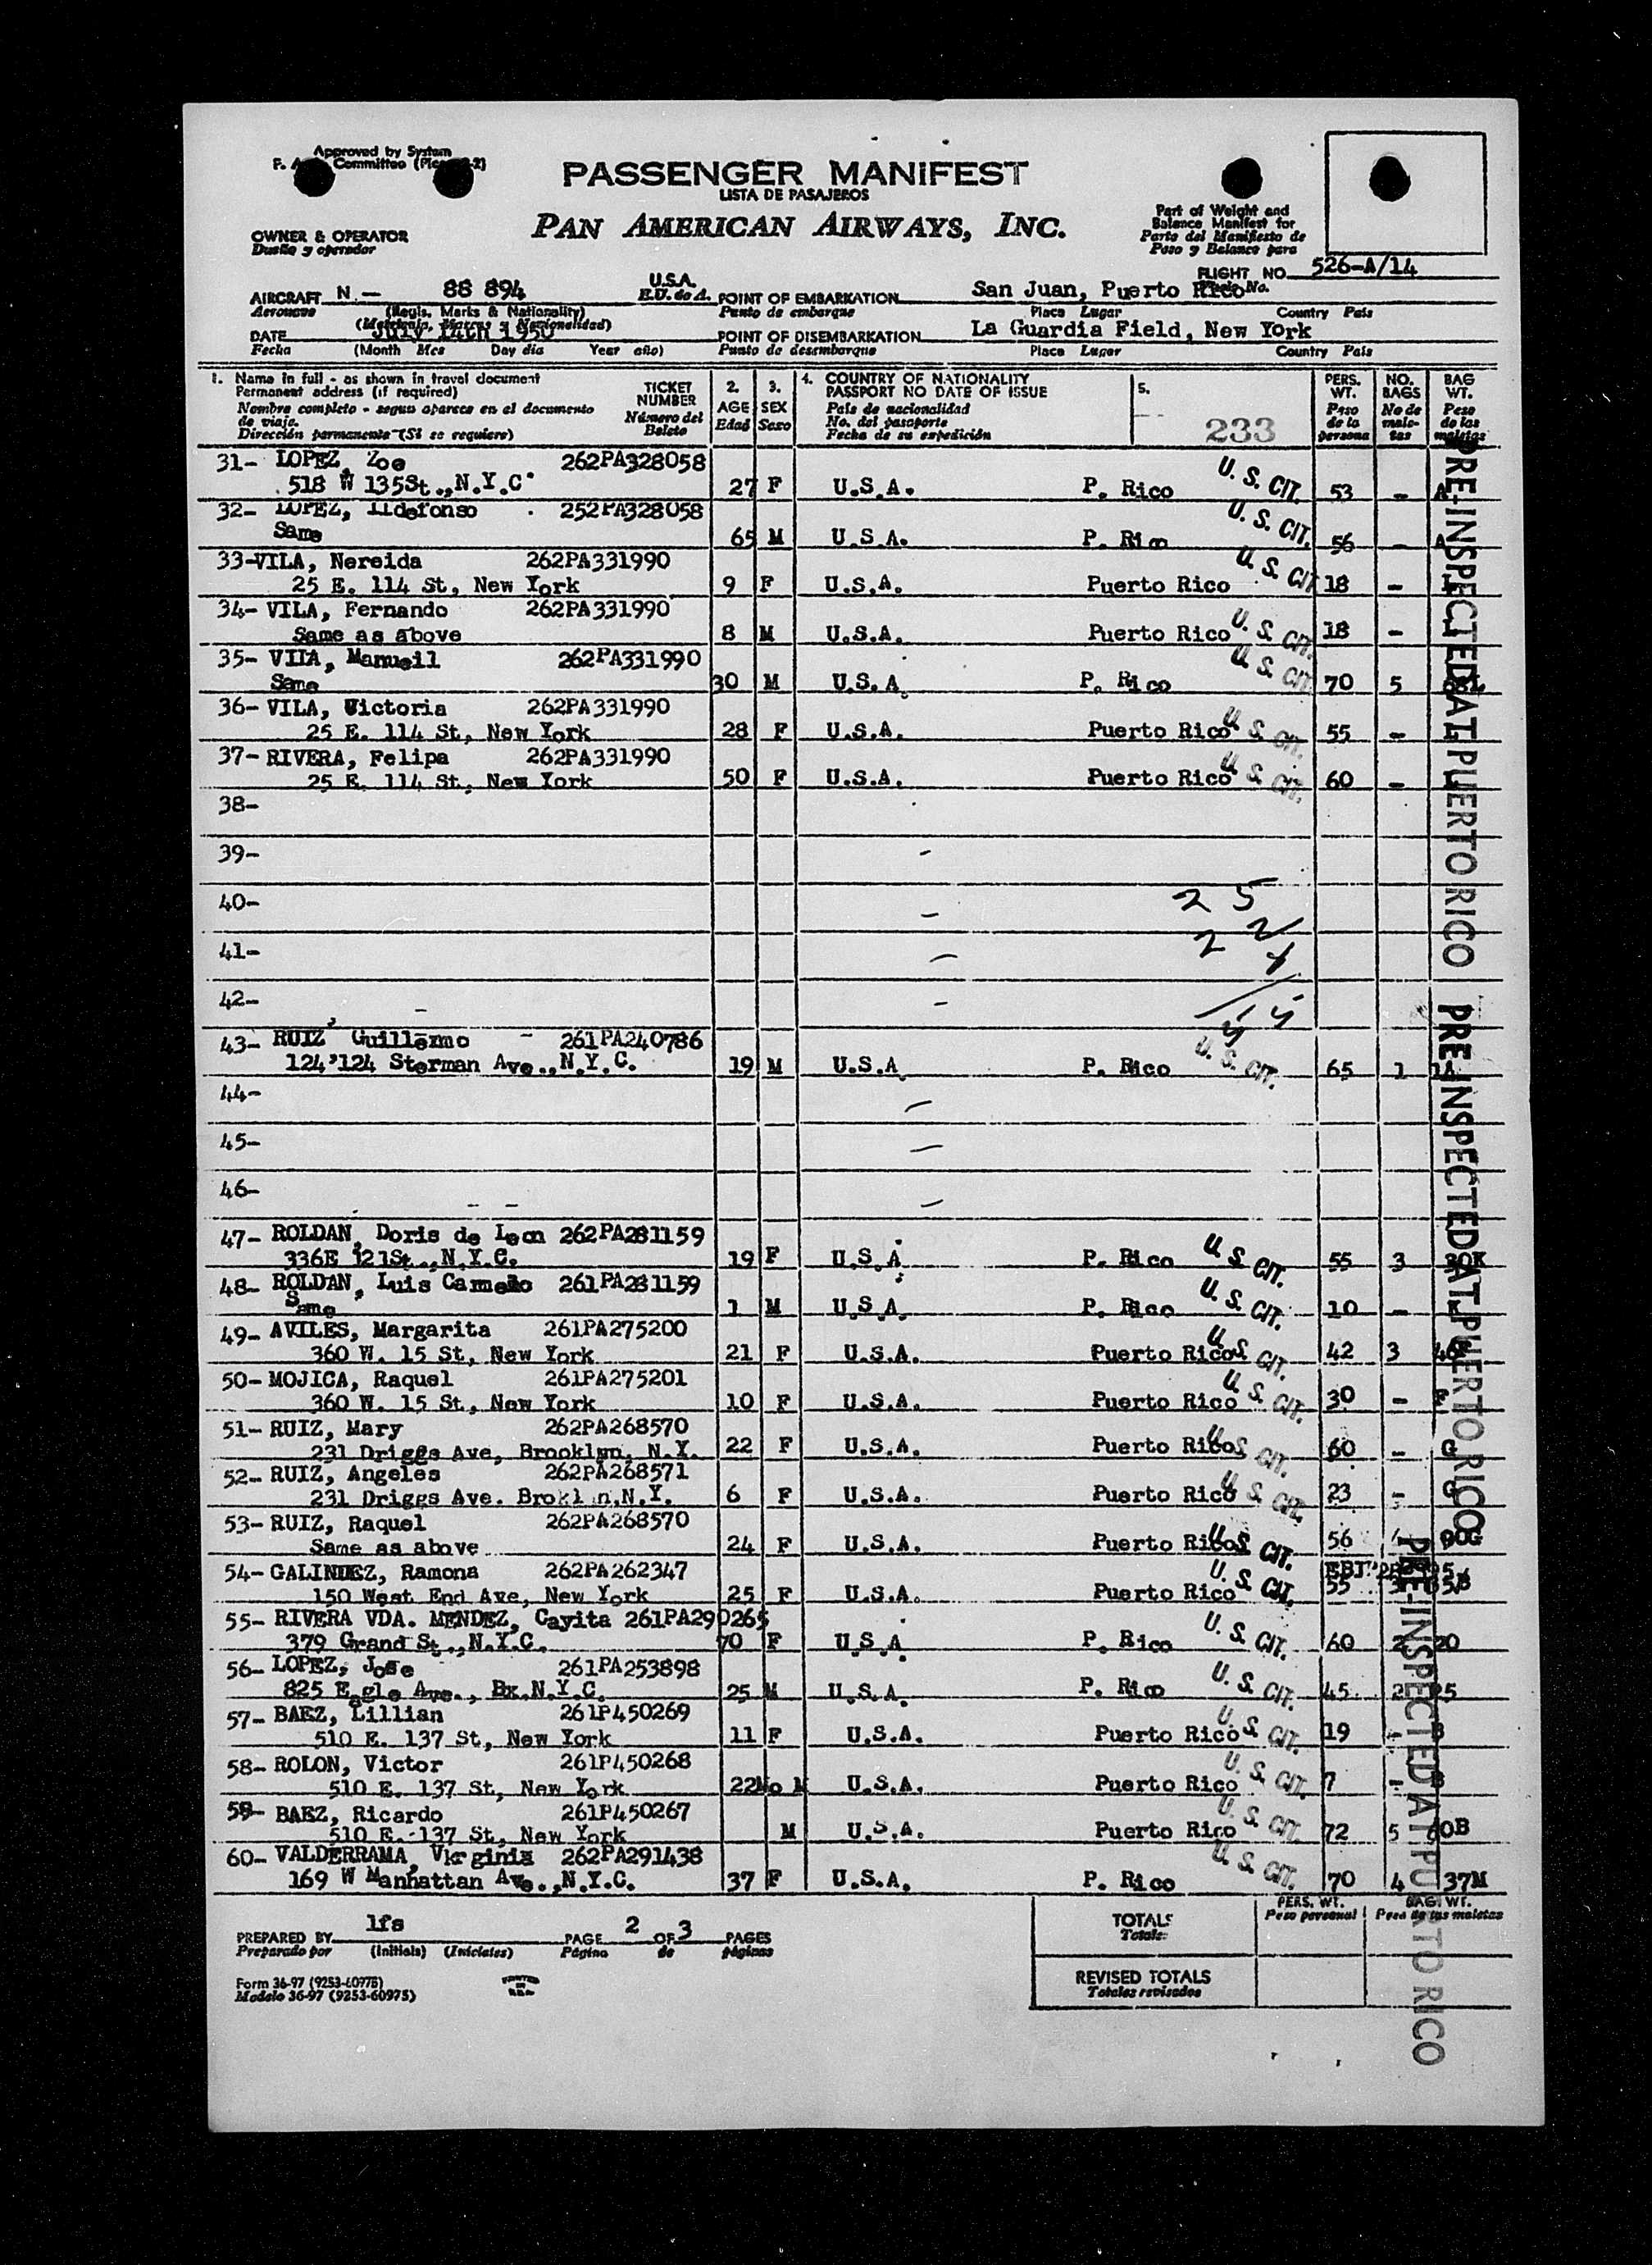 Approved by System
Committee
PASSENGER MANIFEST
LISTA DE PASAJEROS
PAN AMERICAN AIRWAYS, INC.
OWNER & OPERATOR
Dueño y operador
Part of Weight and
Balance Manifest for
Parte del Manifiesto de
Peso y Balance para
FLIGHT NO. 526-A/14
AIRCRAFT N - 88 894 U.S.A. POINT OF EMBARKATION San Juan, Puerto Rico
Aeronave (Regis. Marks & Nationality) E.U. de A. Punto de embarque Place Lugar Country País
DATE July 14th 1950 POINT OF DISEMBARKATION La Guardia Field, New York
Fecha (Month Mes Day día Year año) Punto de desembarque Place Lugar Country País
1. Name in full - as shown in travel document
Permanent address (if required)
Nombre completo - segun aparece en el documento
de viaje.
Dirección permanente (Si se requiere)
TICKET
NUMBER
Número del
Boleto
2.
AGE
Edad
3.
SEX
Sexo
4. COUNTRY OF NATIONALITY
PASSPORT NO DATE OF ISSUE
País de nacionalidad
No. del pasaporte
Fecha de su expedición
5.
233
PERS.
WT.
Peso
de la
persona
NO.
BAGS
No de
male-
tas
BAG
WT.
Peso
de las
maletas
31- LOPEZ, Zoe 262PA328058
518 W 135St.,N.Y.C 27 F U.S.A. P. Rico U. S. CIT. 53 - A
32- LOPEZ, Ildefonso 252PA328058
Same 65 M U.S.A. P. Rico U. S. CIT. 56 - A
33-VILA, Nereida 262PA331990
25 E. 114 St, New York 9 F U.S.A. Puerto Rico U. S. CIT 18 -
34- VILA, Fernando 262PA331990
Same as above 8 M U.S.A. Puerto Rico U. S. CIT. 18 -
35- VIIA, Manueil 262PA331990
Same 30 M U.S.A. P. Rico U. S. CIT. 70 5
36- VILA, Victoria 262PA331990
25 E. 114 St, New York 28 F U.S.A. Puerto Rico U. S. CIT. 55 -
37- RIVERA, Felipa 262PA331990
25 E. 114 St, New York 50 F U.S.A. Puerto Rico U. S. CIT. 60 -
38-
39-
40-
2 5
41-
42-
43- RUIZ Guillermo 261PA240786
124'124 Sterman Ave.,N.Y.C. 19 M U.S.A P. Rico U. S. CIT. 65 1
44-
45-
46-
47- ROLDAN, Doris de Leon 262PA281159
336E 121St.,N.Y.C. 19 F U.S.A P. Rico U. S. CIT. 55 3
48- ROLDAN, Luis Carmelo 261PA281159
Same 1 M U.S.A. P. Rico U. S. CIT. 10 -
49- AVILES, Margarita 261PA275200
360 W. 15 St, New York 21 F U.S.A. Puerto Rico U. S. CIT. 42 3
50- MOJICA, Raquel 261PA275201
360 W. 15 St, New York 10 F U.S.A. Puerto Rico U. S. CIT. 30 -
51- RUIZ, Mary 262PA268570
231 Driggs Ave, Brooklyn, N.Y. 22 F U.S.A. Puerto Rico U. S. CIT. 60 - G
52- RUIZ, Angeles 262PA268571
231 Driggs Ave. Brokl n,N.Y. 6 F U.S.A. Puerto Rico U. S. CIT. 23 - G
53- RUIZ, Raquel 262PA268570
Same as above 24 F U.S.A. Puerto Rico U. S. CIT. 56
54- GALINDEZ, Ramona 262PA262347
150 West End Ave, New York 25 F U.S.A. Puerto Rico U. S. CIT. 55 3
55- RIVERA VDA. MENDEZ, Cayita 261PA290265
379 Grand St.,N.Y.C. 70 F U.S.A. P. Rico U. S. CIT. 60 2 20
56- LOPEZ, Jose 261PA253898
825 Eagle Ave., Bx.N.Y.C. 25 M U.S.A. P. Rico U. S. CIT. 45 2
57- BAEZ, Lillian 261P450269
510 E. 137 St, New York 11 F U.S.A. Puerto Rico U. S. CIT. 19 - B
58- ROLON, Victor 261P450268
510 E. 137 St, New York 22Mo M U.S.A. Puerto Rico U. S. CIT. 7 - B
59- BAEZ, Ricardo 261P450267
510 E. 137 St, New York M U.S.A. Puerto Rico U. S. CIT. 72 5 60B
60- VALDERRAMA, Virginia 262PA291438
169 W Manhattan Ave.,N.Y.C. 37 F U.S.A. P. Rico U. S. CIT. 70 4 37M
PRE-INSPECTED AT PUERTO RICO
PRE-INSPECTED AT PUERTO RICO
PRE-INSPECTED AT PUERTO RICO
PREPARED BY lfs PAGE 2 OF 3 PAGES
Preparado por (Initials) (Iniciales) Página de páginas
TOTALS
Totales
PERS. WT.
Peso personal
BAG. WT.
Peso de las maletas
REVISED TOTALS
Totales revisados
Form 36-97 (9253-60975)
Modelo 36-97 (9253-60975)